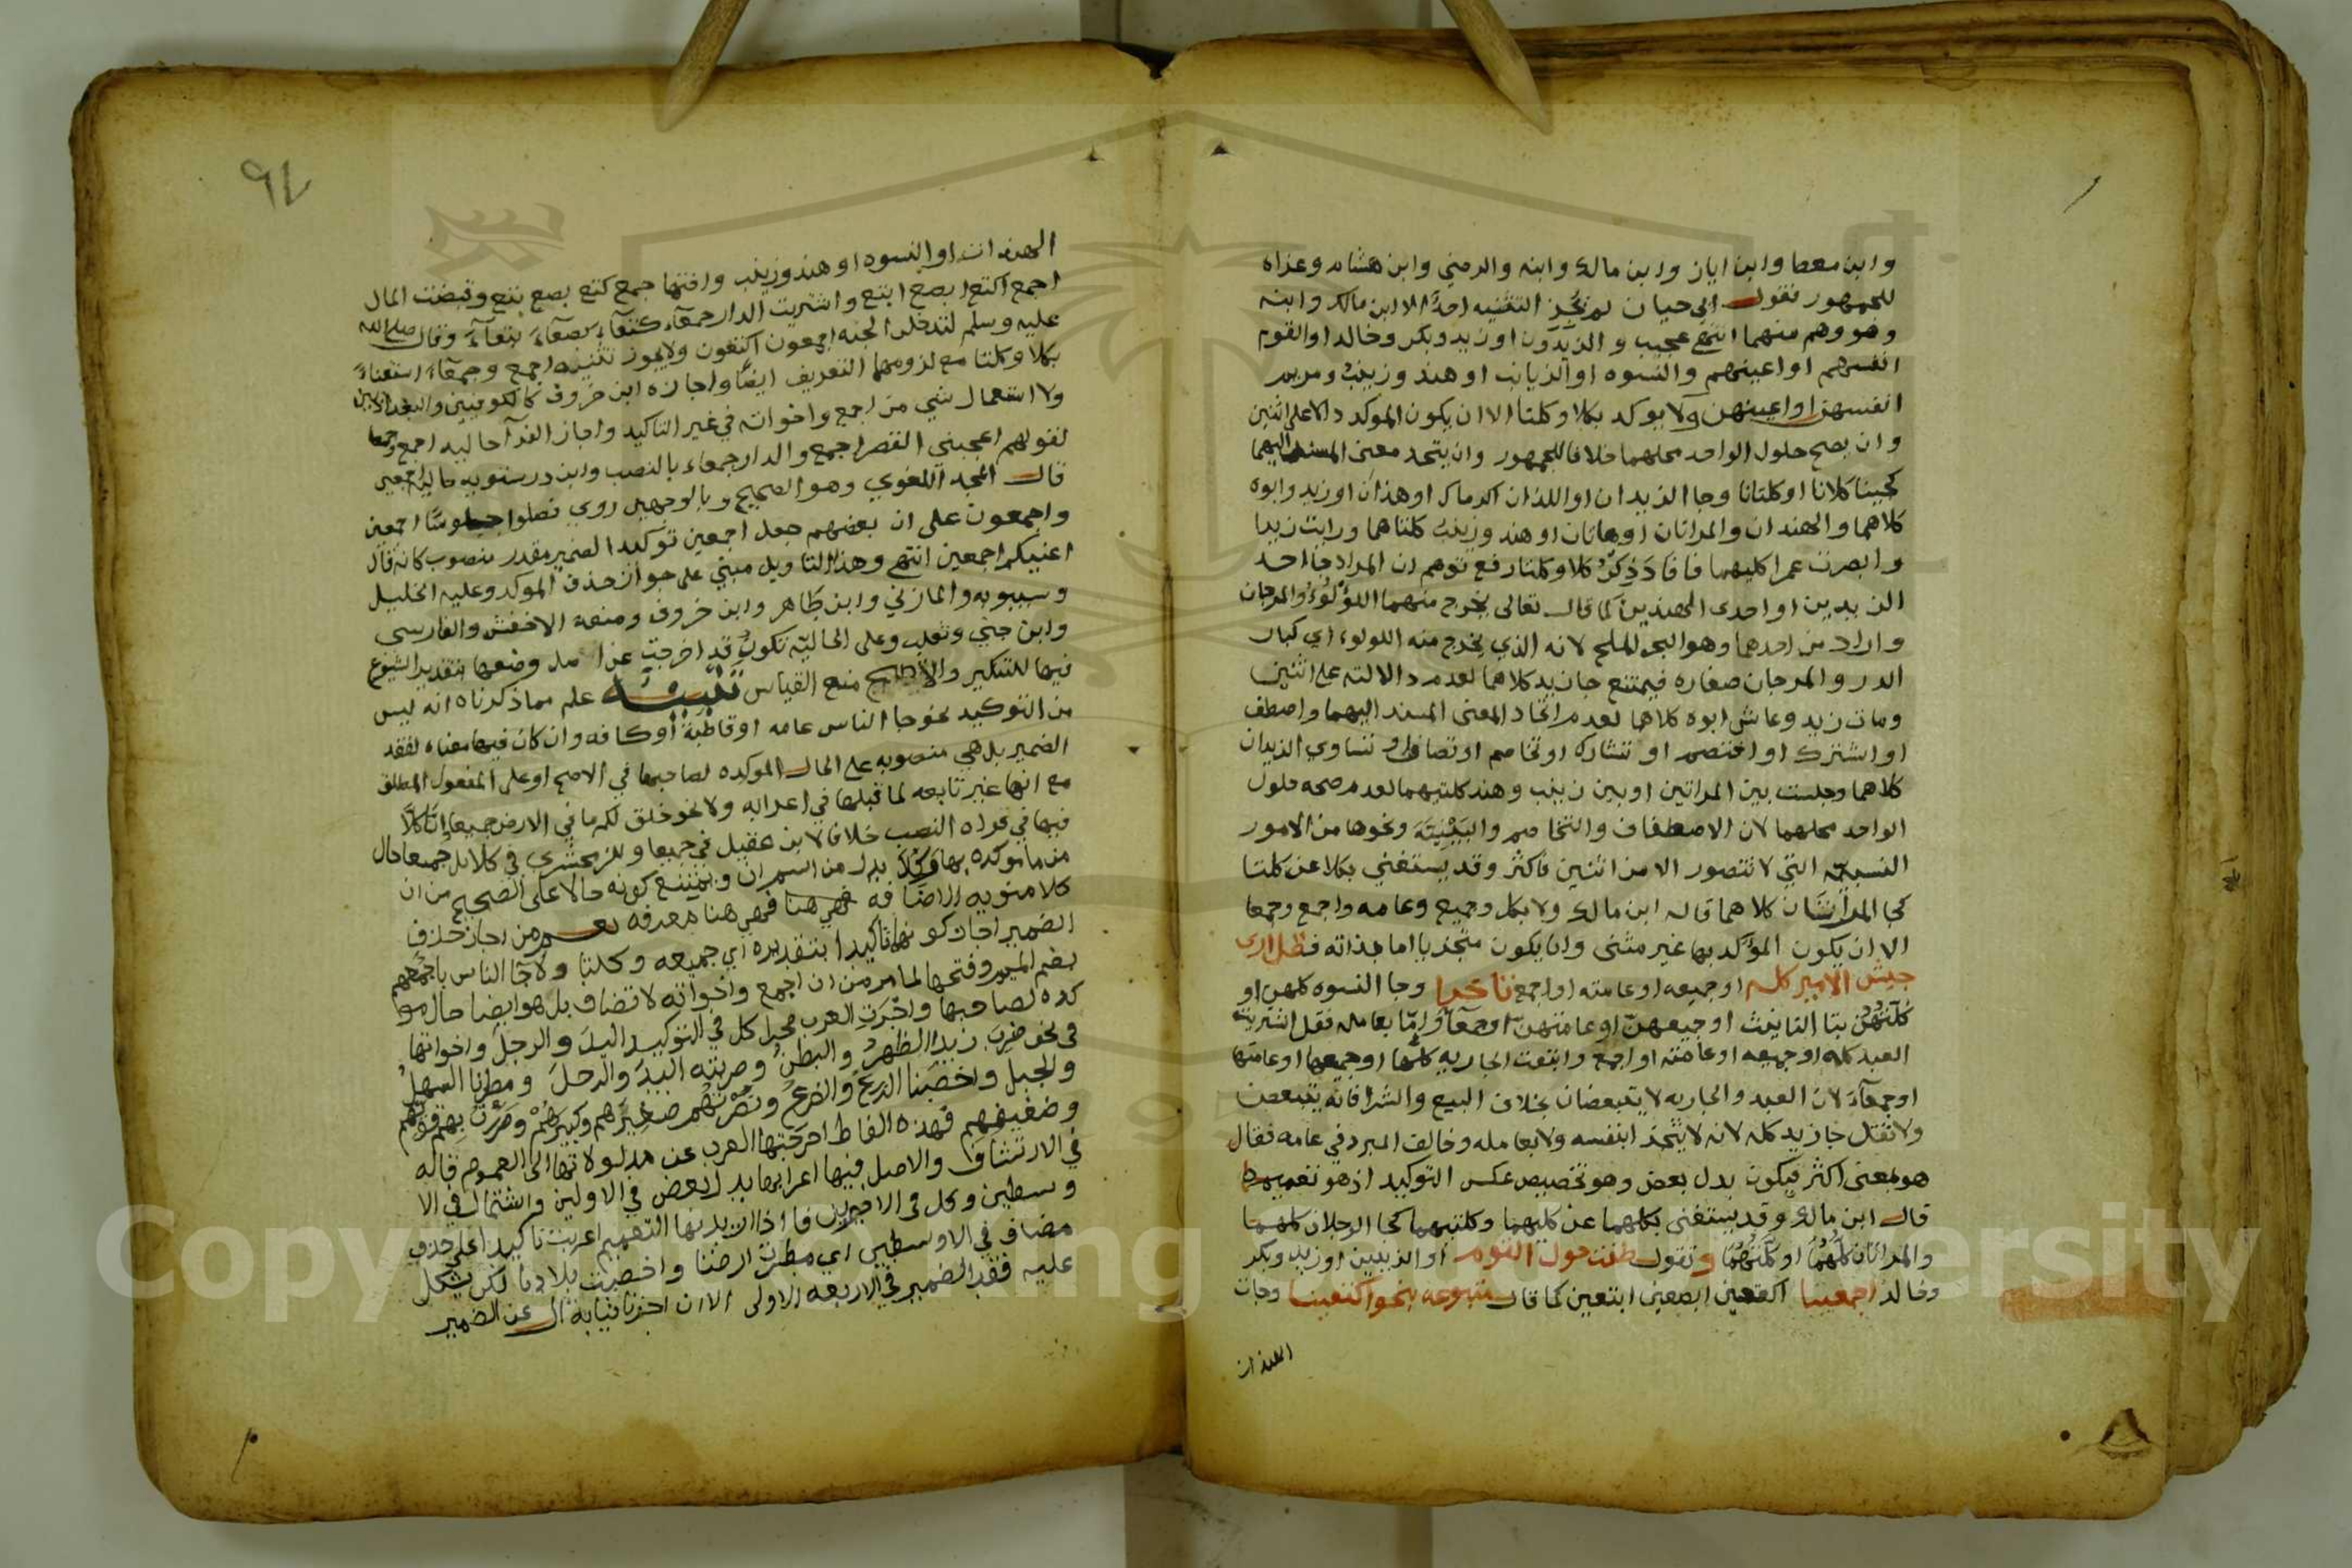 وابن معط وابن اياز وابن مالك وابنه والرضي وابن هشام وعزاه
للجمهور فقول ابي حيان لم يجز التثنيه احد الا ابن مالك وابنه
وهو وهم منهما انتهى عجيب و الزيدون او زيد وبكر وخالد او القوم
انفسهم او اعينهم والنسوه او الزيانب او هند وزينب ومريم
انفسهن او اعينهن ولا يوكد بكلا وكلتا الا ان يكون الموكد دالا على اثنين
وان يصح حلول الواحد محلهما خلافا للجمهور وان يتحد معنى المسند اليهما
كجينا كلانا او كلتانا وجا الزيدان او اللذان اكرماك او هذان او زيد وابوه
كلاهما والهندان والمراتان او هاتان او هند وزينب كلتاهما ورايت زيدا
وابصرت عمرا كليهما فافاد ذكر كلا وكلتا رفع توهم ان المراد جا احد
الزيدين او احدى الهندين كما قال تعالى يخرج منهما اللؤلؤ والمرجان
واراد من احدهما وهو البحر الملح لانه الذي يخرج منه اللولوء اي كبار
الدر و المرجان صغاره فيمتنع جا زيد كلاهما لعدم دلالته على اثنين
ومات زيد وعاش ابوه كلاهما لعدم اتحاد المعنى المسند اليهما واصطف
او اشترك او اختصم او تشارك او تخاصم او تصافى او تساوي الزيدان
كلاهما وجلست بين المراتين او بين زينب وهند كلتيهما لعدم صحه حلول
الواحد محلهما لان الاصطفاف والتخاصم والبينية ونحوها من الامور
النسبية التي لا تتصور الا من اثنين فاكثر وقد يستغني بكلا عن كلتا
كجا المراتان كلاهما قاله ابن مالك ولا بكل وجميع وعامه واجمع وجمعا
الا ان يكون المؤكد بها غير مثنى وان يكون متجزيا اما بذاته فظل ارى
جيش الامير كله او جميعه او عامته او اجمع ناخرا وجا النسوه كلهن او
كلتهن بتا التانيث او جميعهن او عامتهن او جمعا واما بعامله فقل اشتريت
العبد كله او جميعه او عامته او اجمع وابتعت الجاريه كلها او جميعها او عامتها
او جمعآء لان العبد والجاريه لا يتبعضان بخلاف البيع والشرا فانه يتبعض
ولا تقل جا زيد كله لانه لا يتجزا بنفسه ولا بعامله وخالف المبرد في عامه فقال
هو بمعنى اكثر فيكون بدل بعض وهو تخصيص عكس التوكيد اذ هو تعميم
قال ابن مالك وقد يستغنى بكلهما عن كليهما وكلتيهما كجا الرجلان كلهما
والمراتان كلهما او كلتهما وتقول طفت حول القوم او الزيدين او زيد وبكر
وخالد اجمعينا اكتعين ابصعين ابتعين كما قال متبوعه بنحو اكتعينا وجات
الهندات
٩٤
الهندات او النسوه او هند وزينب واختها جمع كتع بصع بتع وقبضت المال
اجمع اكتع ابصع ابتع واشتريت الدار جمعآء كتعآء بصعآء بتعآء وقال صلى الله
عليه وسلم لتدخلن الجنه اجمعون اكتعون ولا يجوز تثنيه اجمع وجمعآء استغناء
بكلا وكلتا مع لزومهما التعريف ايضا واجازه ابن خروف كالكوفيين والبغداديين
ولا استعمال شي من اجمع واخواته في غير التاكيد واجاز الفرآ حاليه اجمع وجمعا
لقولهم اعجبني القصر اجمع والدار جمعاء بالنصب وابن درستويه حاليه اجمعين
قال المجد اللغوي وهو الصحيح وبالوجهين روي فصلوا جلوسا اجمعين
واجمعون على ان بعضهم جعل اجمعين توكيدا لضمير مقدر منصوب كانه قال
اعنيكم اجمعين انتهى وهذا التاويل مبني على جواز حذف الموكد وعليه الخليل
وسيبويه والمازني وابن طاهر وابن خروف ومنعه الاخفش والفارسي
وابن جني وثعلب وعلى الحالية تكون قد اخرجت عن اصل وضعها بتقدير الشيوع
فيها للتنكير والاصح منع القياس تنبيه علم مما ذكرناه انه ليس
من التوكيد نحو جا الناس عامه او قاطبة او كافه وان كان فيها معناه لفقد
الضمير بل هي منصوبه على الحال الموكده لصاحبها في الاصح او على المفعول المطلق
مع انها غير تابعه لما قبلها في اعرابه ولا نحو خلق لكم ما في الارض جميعا انا كلا
فيها في قراه النصب خلافا لابن عقيل في جميعا وللزمخشري في كلا بل جميعا حال
من ما موكده بها وكلا بدل من اسم ان ويمتنع كونه حالا على الصحيح من ان
كلا منويه الاضافه فهي هنا معرفه نعم من اجاز حذف
الضمير اجاز كونها تاكيدا بتقديره اي جميعه وكلنا ولا جا الناس باجمعهم
بضم الميم وفتحها لما مر من ان اجمع واخواته لا تضاف بل هو ايضا حال مو
كده لصاحبها واجرت العرب مجرا كل في التوكيد اليد والرجل واخواتها
في نحو ضرب زيد الظهر والبطن وضربته اليد والرجل ومطرنا السهل
والجبل واخصبنا الزرع والضرع ونصرتهم صغيرهم وكبيرهم ومررت بهم قويهم
وضعيفهم فهذه الفاظ اخرجتها العرب عن مدلولاتها الى العموم قاله
في الارتشاف والاصل فيها اعرابها بدل بعض في الاولين واشتمال في الا
وسطين وكل في الاخيرين فاذا اريد بها التعميم اعربت تاكيدا على حذف
مضاف في الاوسطين اي مطرت ارضنا واخصبت بلادنا لكن يشكل
عليه فقد الضمير في الاربعه الاولى الا ان اخترنا نيابة ال عن الضمير